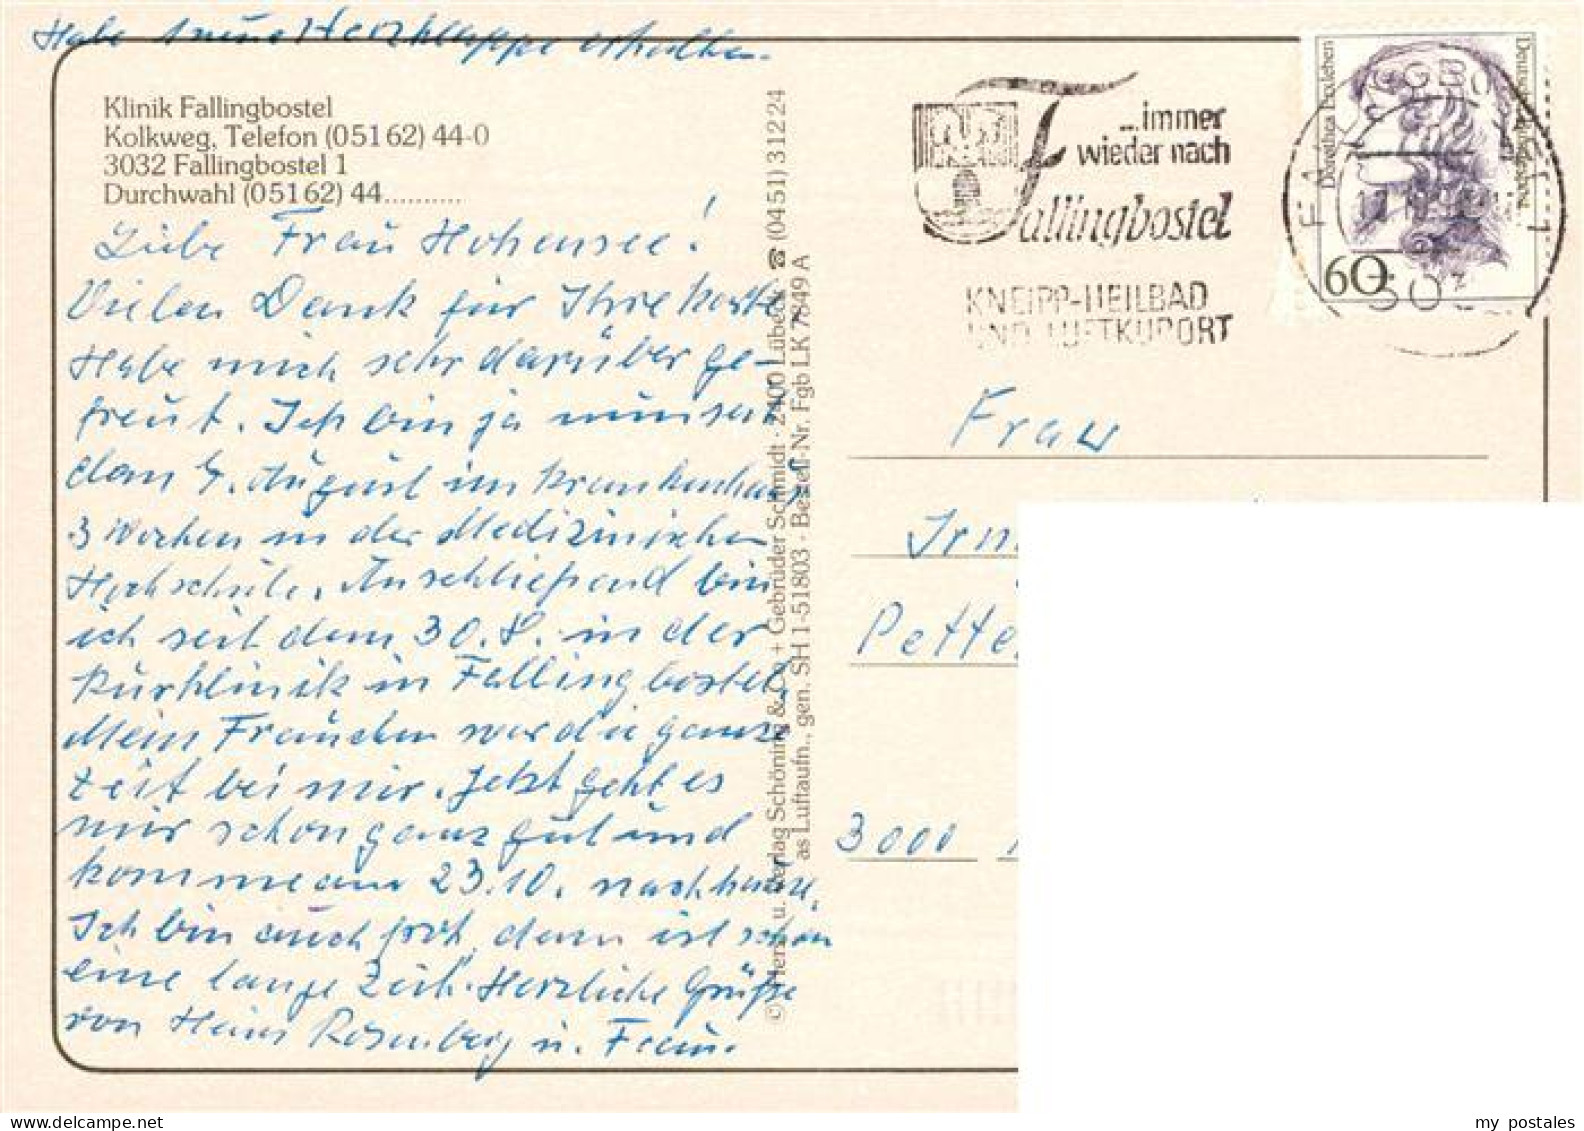 Habe 1 neue Herzklappe erhalten.
Klinik Fallingbostel
Kolkweg, Telefon (051 62) 44-0
3032 Fallingbostel 1
Durchwahl (051 62) 44..........
Liebe Frau Hohensee!
Vielen Dank für Ihre Karte
Habe mich sehr darüber ge-
freut. Ich bin ja nun seit
dem 4. August im Krankenhaus
3 Wochen in der Medizinischen
Hochschule. Anschließend bin
ich seit dem 30.8. in der
Kurklinik in Fallingbostel.
Mein Frauchen war die ganze
Zeit bei mir. Jetzt geht es
mir schon ganz gut und
komme am 23.10. nachhause.
Ich bin auch froh, denn ist schon
eine lange Zeit. Herzliche Grüße
von Heinz Rosenberg u. Frau.
© Hers. u. Verlag Schöning & Co + Gebrüder Schmidt · 2400 Lübeck · ☎ (0451) 3 12 24
as Luftaufn., gen. SH 1-51803 · Bestell-Nr. Fgb LK 7849 A
...immer
wieder nach
Fallingbostel
KNEIPP-HEILBAD
UND LUFTKURORT
Dorothea Erxleben
Deutsche Bundespost
60
Frau
Irm
Pette
3000
my postales